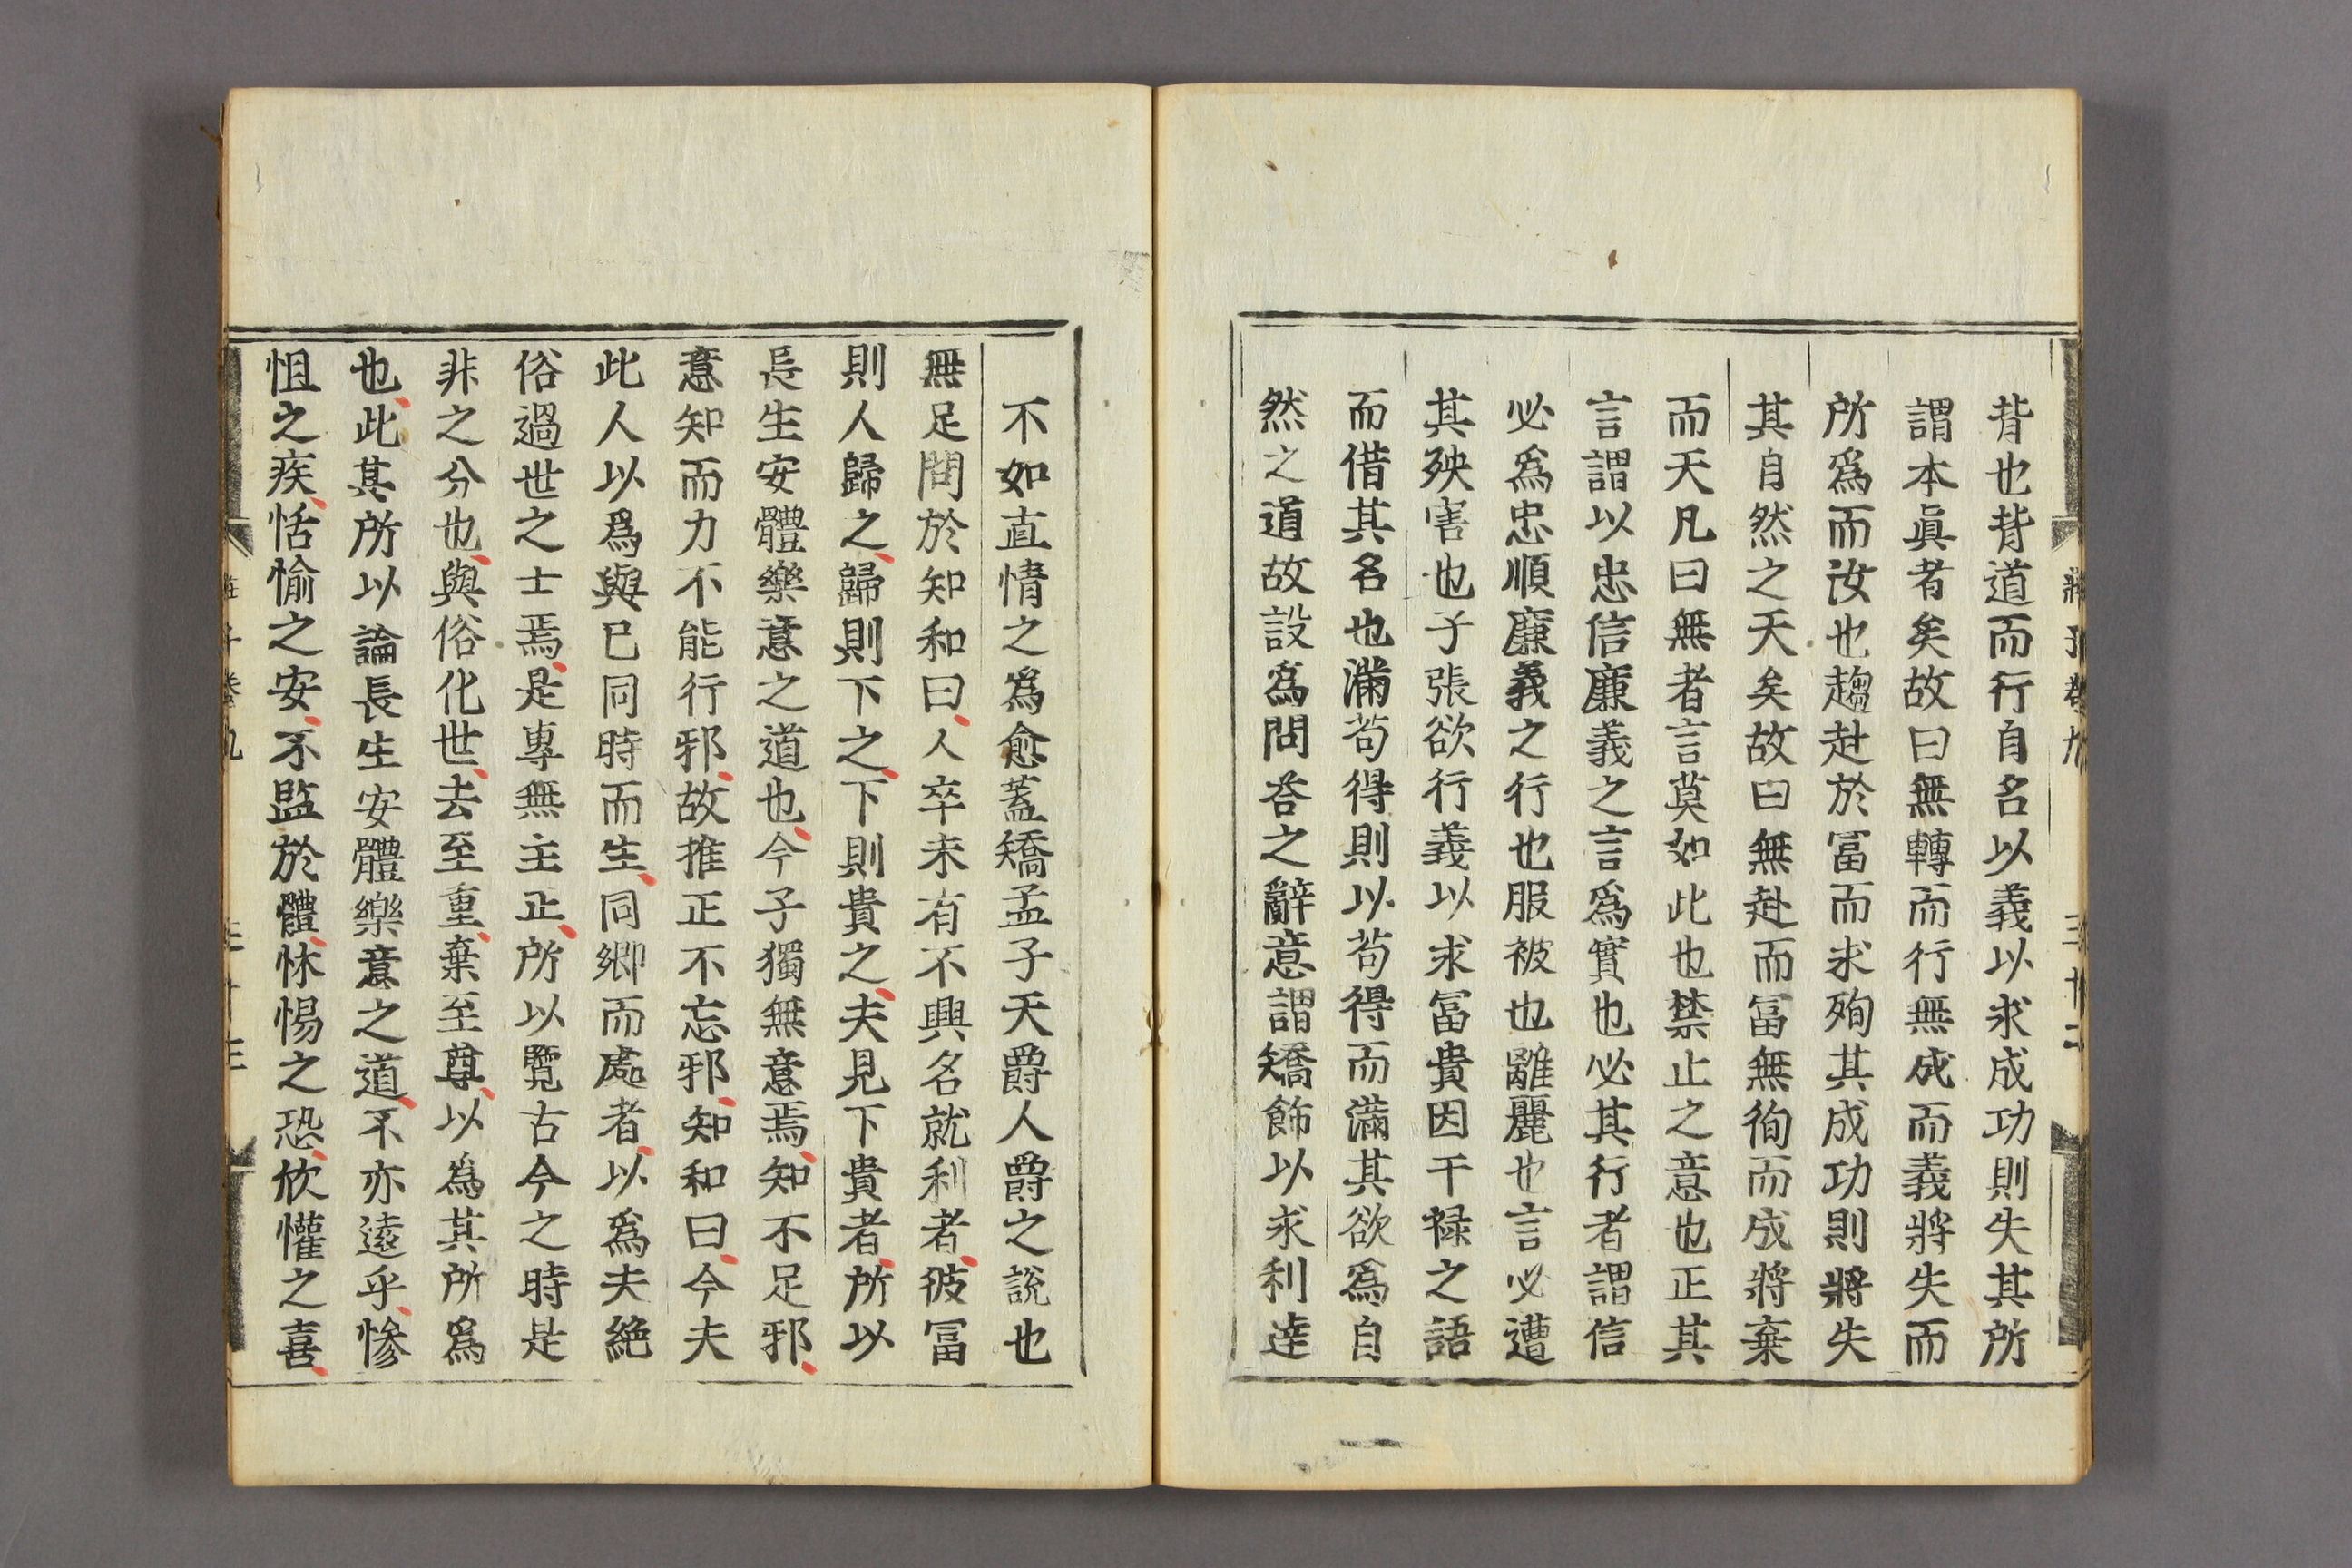 背也背道而行自名以義以求成功則失其所
謂本眞者矣故曰無轉而行無成而義將失而
所爲而汝也趨赴於冨而求殉其成功則將失
其自然之天矣故曰無赴而冨無徇而成將棄
而天凡曰無者言莫如此也禁止之意也正其
言謂以忠信廉義之言爲實也必其行者謂信
必爲忠順廉義之行也服被也離麗也言必遭
其殃害也子張欲行義以求冨貴因干祿之語
而借其名也滿茍得則以茍得而滿其欲爲自
然之道故設爲問荅之辭意謂矯飾以求利達
不如直情之爲愈蓋矯孟子天爵人爵之說也
無足問於知和曰人卒未有不興名就利者彼冨
則人歸之歸則下之下則貴之夫見下貴者所以
長生安體樂意之道也今子獨無意焉知不足邪
意知而力不能行邪故推正不忘邪知和曰今夫
此人以爲與已同時而生同鄉而處者以爲夫絶
俗過世之士焉是專無主正所以覽古今之時是
非之分也與俗化世去至重棄至尊以爲其所爲
也此其所以論長生安體樂意之道不亦遠乎慘
怚之疾恬愉之安不監於體怵惕之恐欣懽之喜